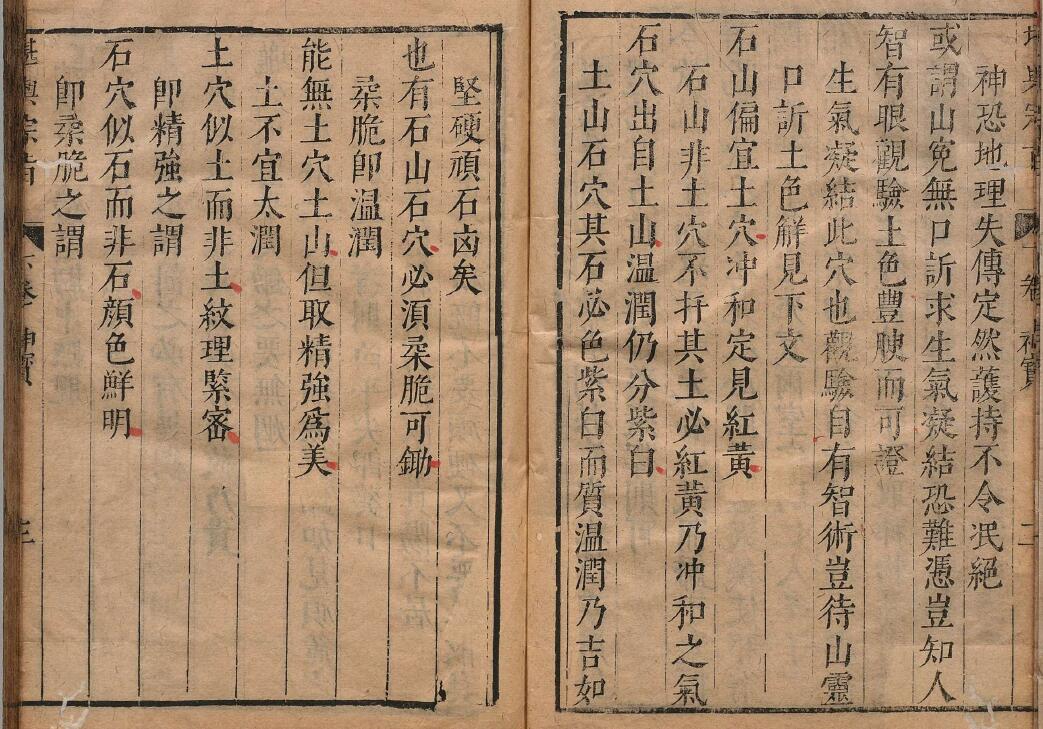 神恐地理失傳定然䕶持不令泯絕
或謂山冤無口訴求生氣凝結恐難憑豈知人
智有眼觀驗土色豐腴而可證
生氣凝結此穴也觀驗自有智術豈待山靈
口訴土色觧見下文
石山偏宜土穴冲和定見紅黃
石山非土穴不扦其土必紅黃乃冲和之氣
石穴出自土山温潤仍分紫白
土山石穴其石必色紫白而質温潤乃吉如
二
堅硬頑石凶矣
也有石山石穴必湏柔脆可鋤
柔脆卽温潤
能無土穴土山但取精強爲美
土不宜太潤
土穴似土而非土紋理緊密
卽精強之謂
石穴似石而非石顔色鮮明
卽柔脆之謂
堪輿宗旨
六卷
神寶
三